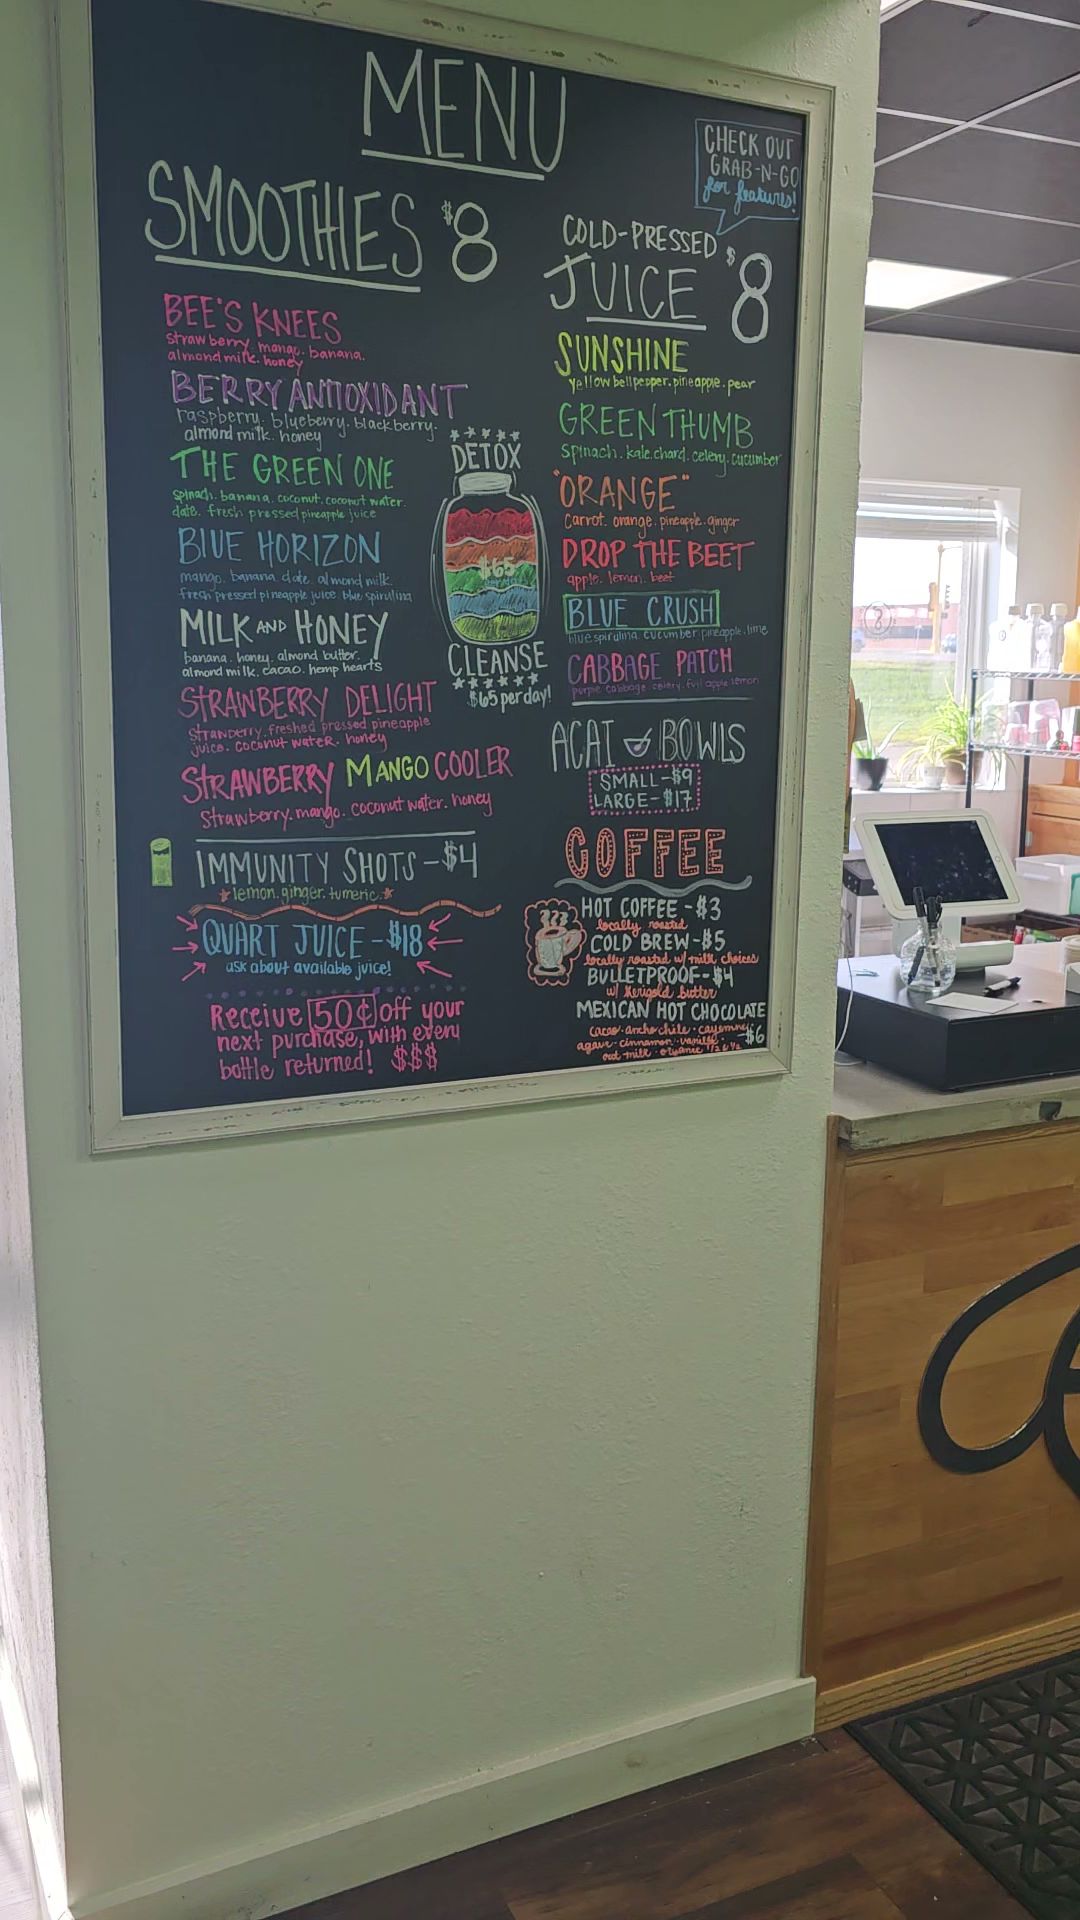 MENU
CHECK OUT
GRAB-N-GO
for features!
SMOOTHIES $8
BEE'S KNEES
strawberry. mango. banana.
almond milk. honey
BERRY ANTIOXIDANT
raspberry. blueberry. blackberry.
almond milk. honey
THE GREEN ONE
spinach. banana. coconut. coconut water.
date. fresh pressed pineapple juice
BLUE HORIZON
mango. banana. date. almond milk.
fresh pressed pineapple juice. blue spirulina
MILK AND HONEY
banana. honey. almond butter.
almond milk. cacao. hemp hearts
STRAWBERRY DELIGHT
strawberry. freshed pressed pineapple
juice. coconut water. honey
STRAWBERRY MANGO COOLER
Strawberry. mango. coconut water. honey
IMMUNITY SHOTS - $4
lemon. ginger. tumeric.
QUART JUICE - $18
ask about available juice!
Receive 50¢ off your
next purchase, with every
bottle returned! $$$
DETOX
$65
CLEANSE
$65 per day!
COLD-PRESSED
JUICE $8
SUNSHINE
yellow bell pepper. pineapple. pear
GREEN THUMB
spinach. kale. chard. celery. cucumber
"ORANGE"
Carrot. orange. pineapple. ginger
DROP THE BEET
apple. lemon. beet
BLUE CRUSH
blue spirulina. cucumber. pineapple. lime
CABBAGE PATCH
purple cabbage. celery. fuji apple. lemon
ACAI BOWLS
SMALL - $9
LARGE - $17
COFFEE
HOT COFFEE - $3
locally roasted
COLD BREW - $5
locally roasted w/ milk choices
BULLETPROOF - $4
w/ Kerigold butter
MEXICAN HOT CHOCOLATE
cacao · ancho chile · cayenne
agave · cinnamon · vanilla · $6
oat milk · organic 1/2 & 1/2